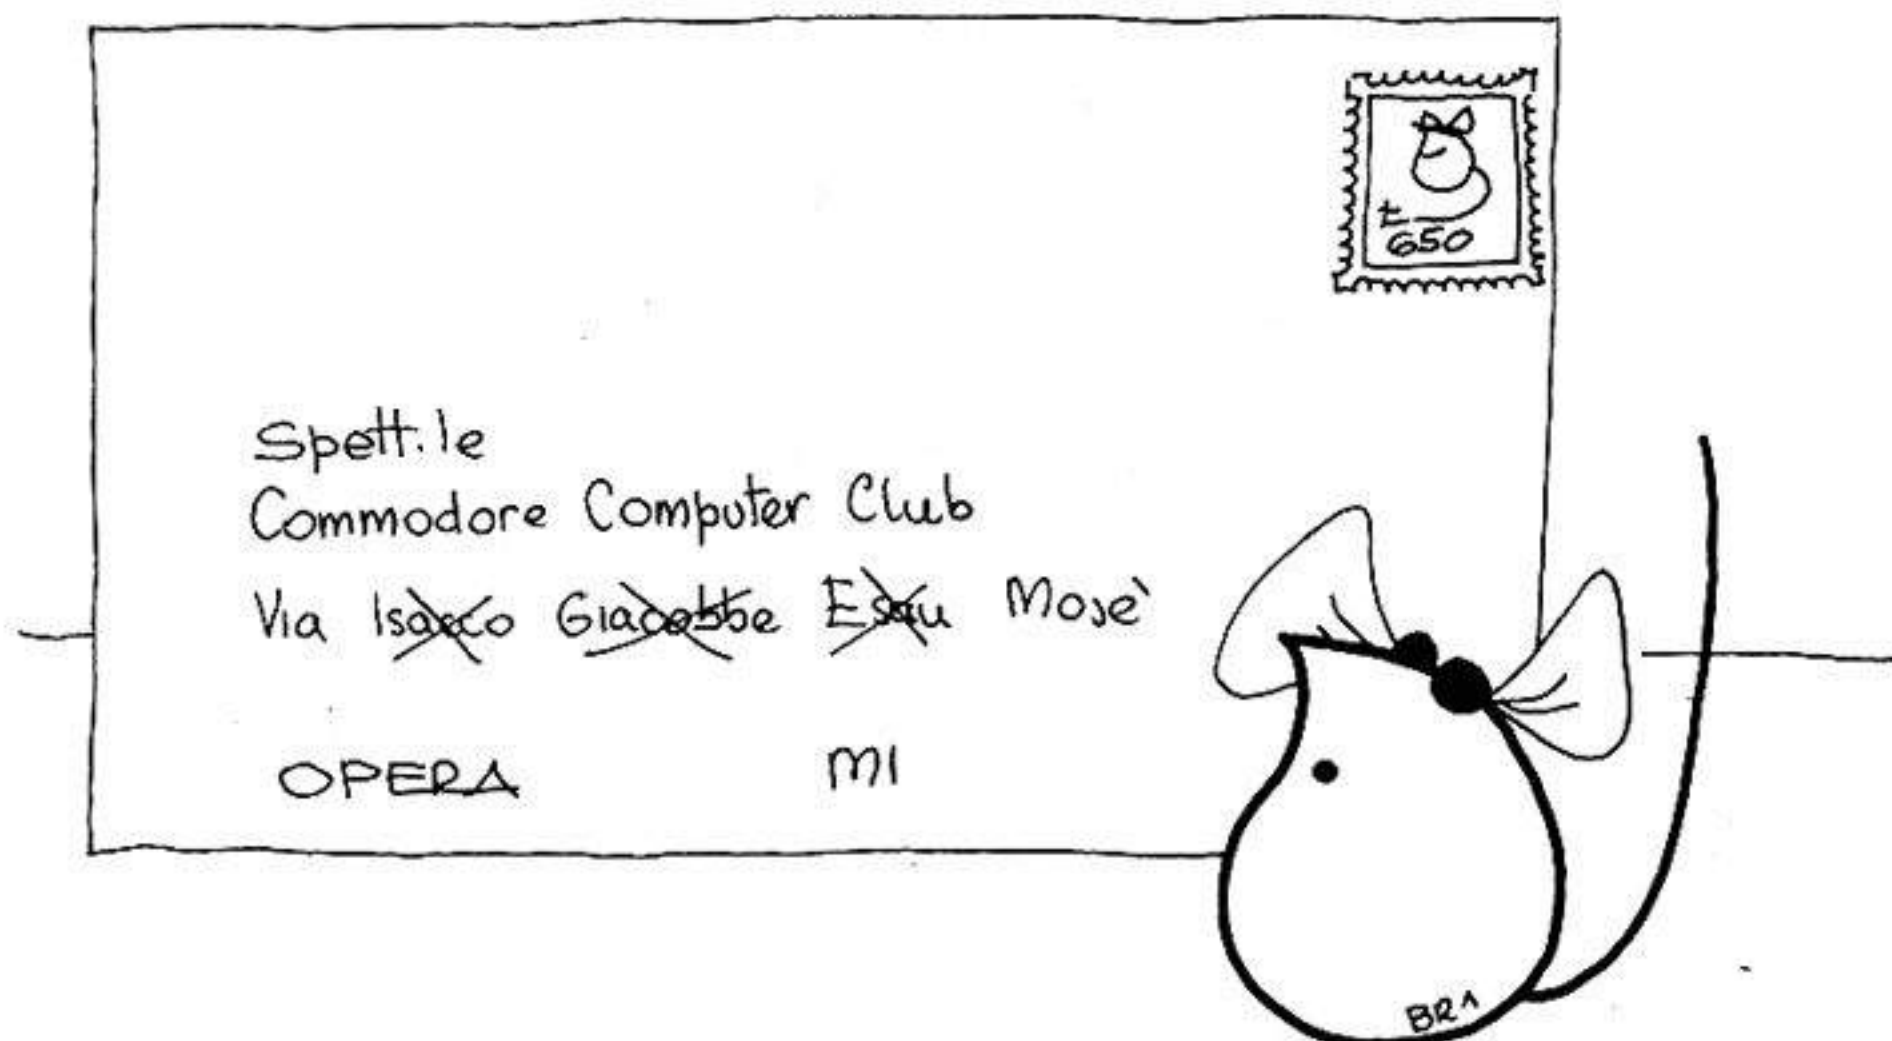 £
650
Spett.le
Commodore Computer Club
Via Isacco Giacobbe Esau Mosè
OPERA MI
BR1